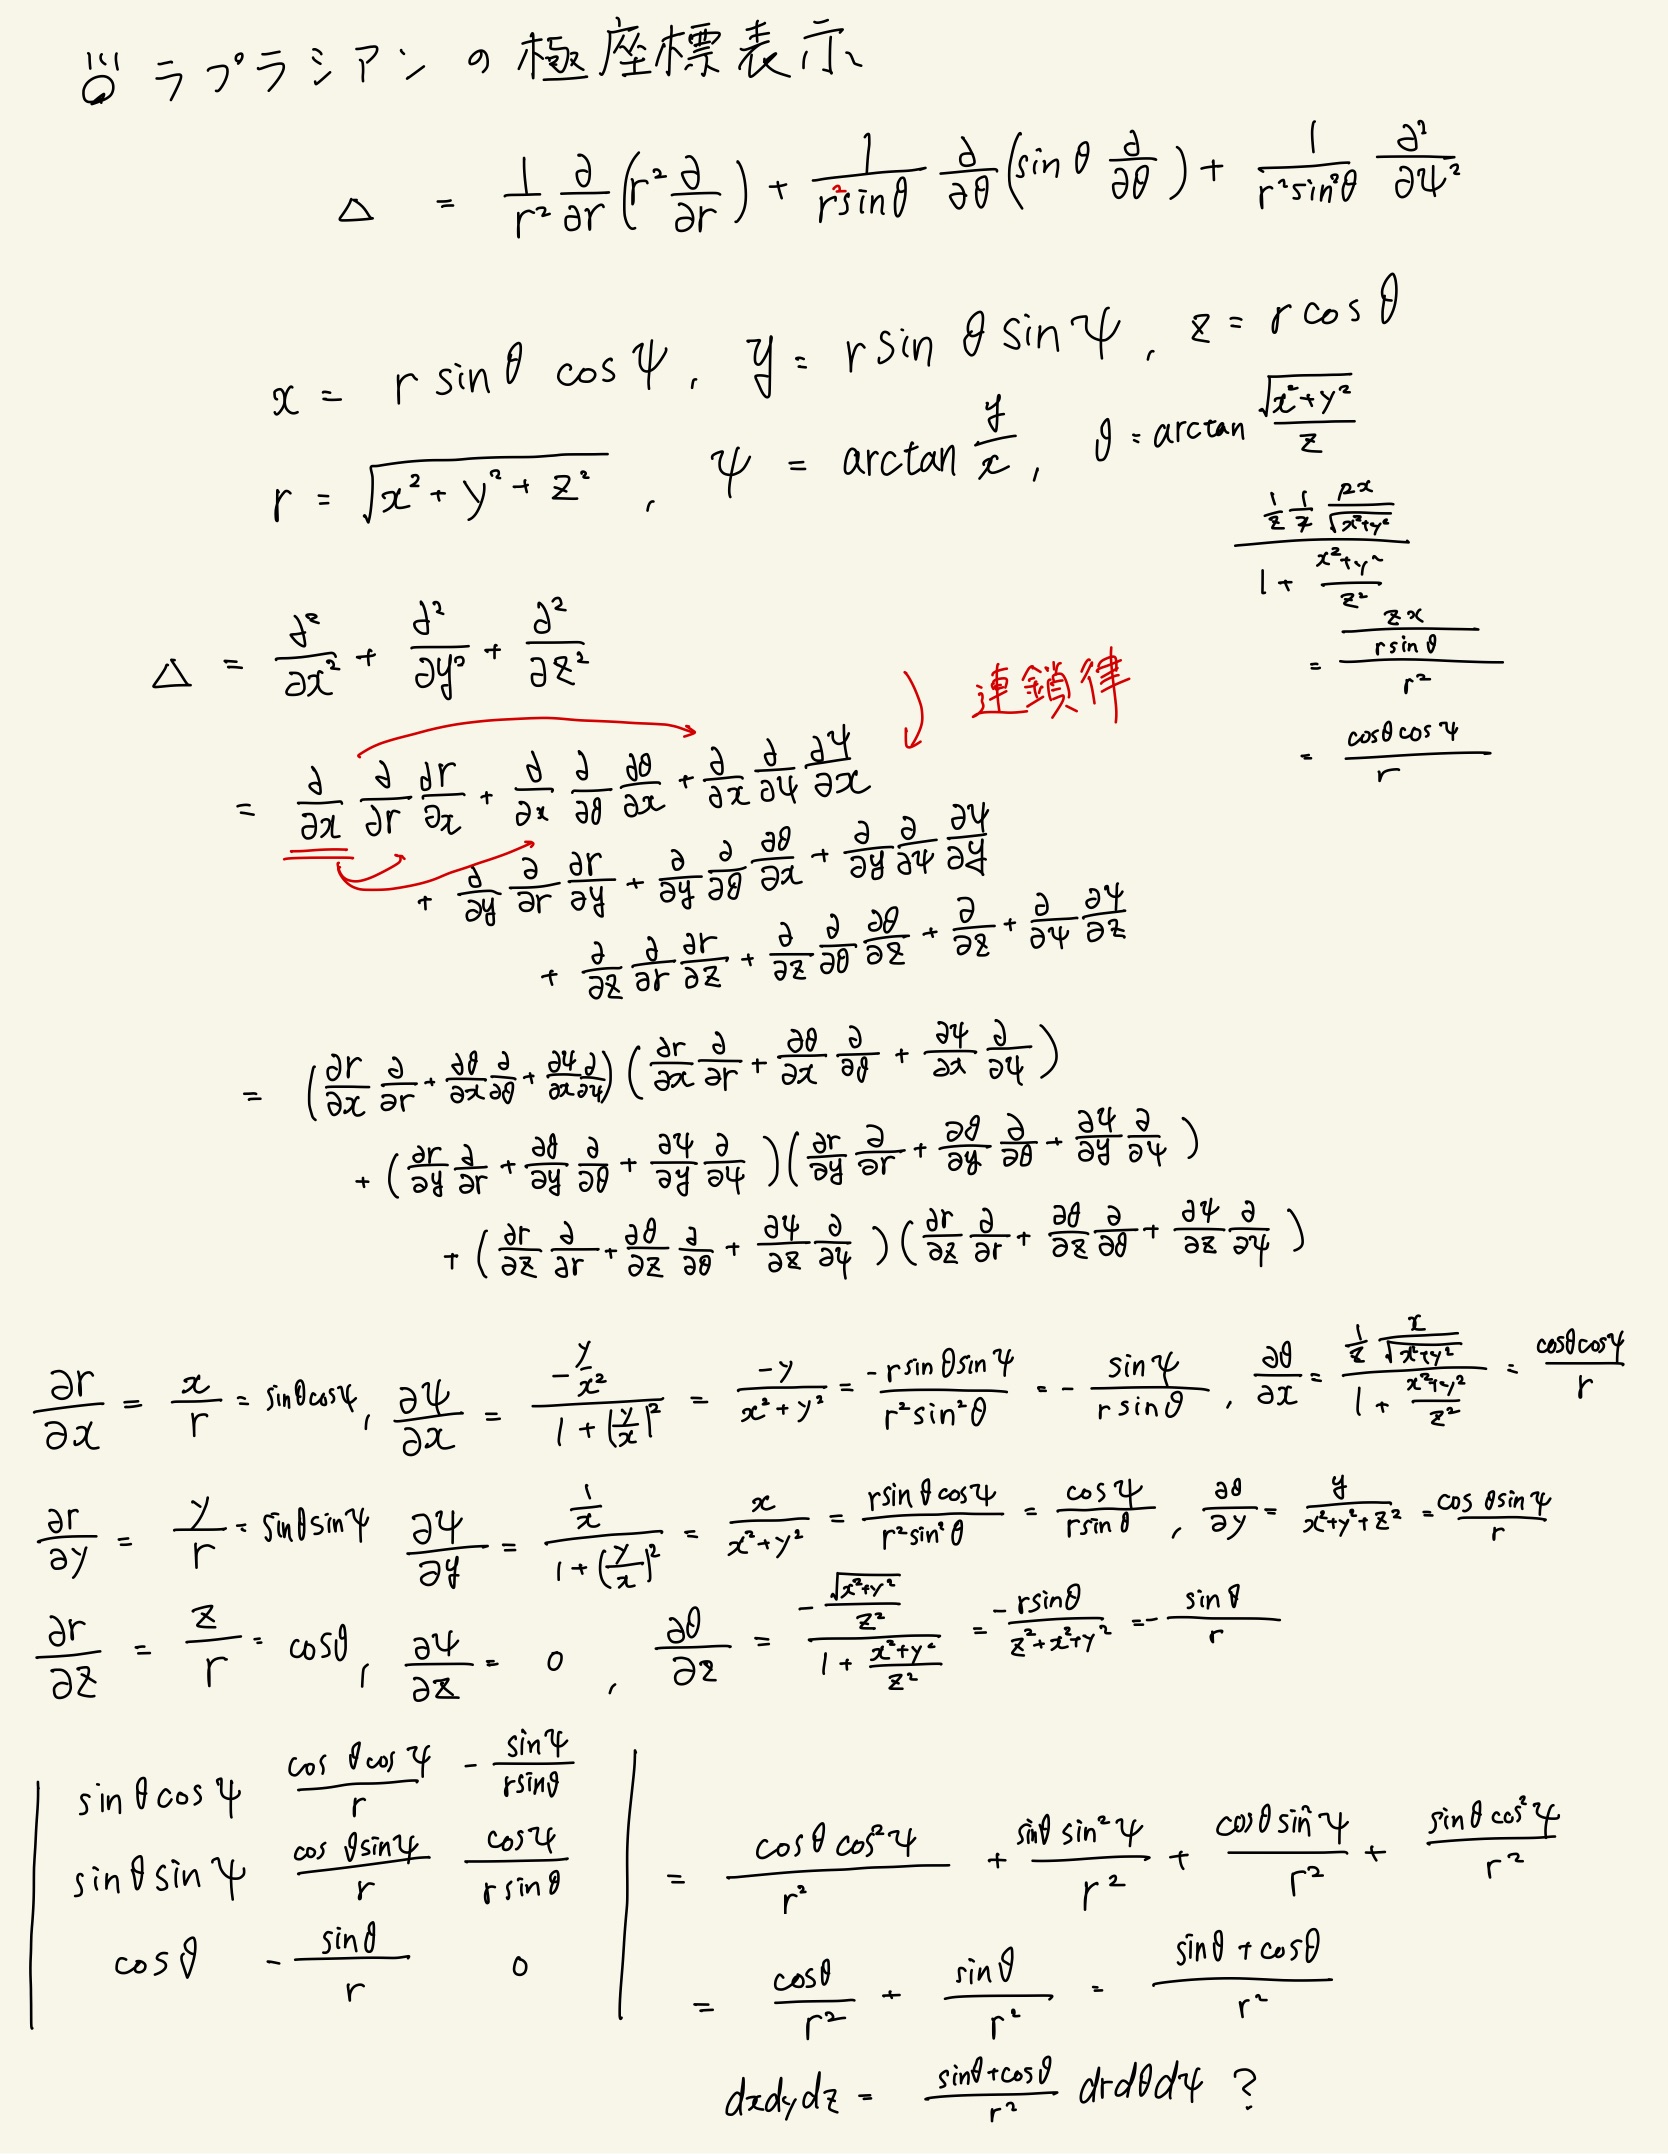 ラプラシアンの極座標表示
△ = 1/r² ∂/∂r (r² ∂/∂r) + 1/(r² sinθ) ∂/∂θ (sinθ ∂/∂θ) + 1/(r² sin²θ) ∂²/∂ψ²
x = r sinθ cosψ, y = r sinθ sinψ, z = r cosθ
r = √(x² + y² + z²), ψ = arctan y/x, θ = arctan √(x²+y²)/z
△ = ∂²/∂x² + ∂²/∂y² + ∂²/∂z²
連鎖律
= ∂/∂x ∂/∂r ∂r/∂x + ∂/∂x ∂/∂θ ∂θ/∂x + ∂/∂x ∂/∂ψ ∂ψ/∂x
+ ∂/∂y ∂/∂r ∂r/∂y + ∂/∂y ∂/∂θ ∂θ/∂x + ∂/∂y ∂/∂ψ ∂ψ/∂y
+ ∂/∂z ∂/∂r ∂r/∂z + ∂/∂z ∂/∂θ ∂θ/∂z + ∂/∂z + ∂/∂ψ ∂ψ/∂z
= (zx/(r sinθ))/r²
= cosθ cosψ/r
= (∂r/∂x ∂/∂r + ∂θ/∂x ∂/∂θ + ∂ψ/∂x ∂/∂ψ)(∂r/∂x ∂/∂r + ∂θ/∂x ∂/∂θ + ∂ψ/∂x ∂/∂ψ)
+ (∂r/∂y ∂/∂r + ∂θ/∂y ∂/∂θ + ∂ψ/∂y ∂/∂ψ)(∂r/∂y ∂/∂r + ∂θ/∂y ∂/∂θ + ∂ψ/∂y ∂/∂ψ)
+ (∂r/∂z ∂/∂r + ∂θ/∂z ∂/∂θ + ∂ψ/∂z ∂/∂ψ)(∂r/∂z ∂/∂r + ∂θ/∂z ∂/∂θ + ∂ψ/∂z ∂/∂ψ)
∂r/∂x = x/r = sinθcosψ, ∂ψ/∂x = (-y/x²)/(1+(y/x)²) = -y/(x²+y²) = -r sinθ sinψ/(r² sin²θ) = - sinψ/(r sinθ), ∂θ/∂x = (1/z x/√(x²+y²))/(1 + (x²+y²)/z²) = cosθcosψ/r
∂r/∂y = y/r = sinθsinψ ∂ψ/∂y = (1/x)/(1+(y/x)²) = x/(x²+y²) = r sinθ cosψ/(r² sin²θ) = cosψ/(r sinθ), ∂θ/∂y = y/(x²+y²+z²) = cosθsinψ/r
∂r/∂z = z/r = cosθ, ∂ψ/∂z = 0, ∂θ/∂z = (-√(x²+y²)/z²)/(1 + (x²+y²)/z²) = -r sinθ/(z²+x²+y²) = - sinθ/r
| sinθ cosψ cosθ cosψ/r - sinψ/(r sinθ) |
| sinθ sinψ cosθ sinψ/r cosψ/(r sinθ) |
| cosθ - sinθ/r 0 |
= cosθ cos²ψ/r² + sinθ sin²ψ/r² + cosθ sin²ψ/r² + sinθ cos²ψ/r²
= cosθ/r² + sinθ/r² = (sinθ + cosθ)/r²
dxdydz = (sinθ+cosθ)/r² drdθdψ ?